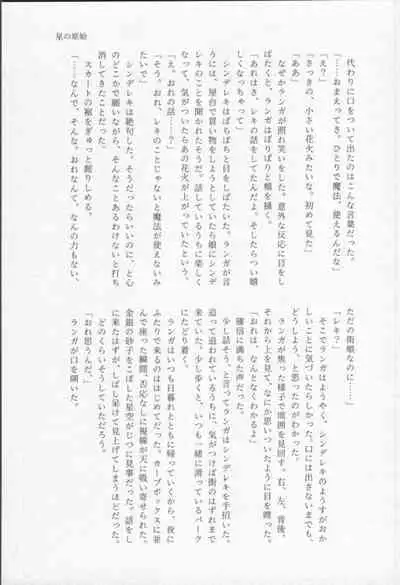 星の原始
代わりに口をついて出たのはこんな言葉だった。
「……おまえってさ、ひとりで魔法、使えるんだな」
「さっきの、小さい花火みたいな。初めて見た」
「ああ」
なぜかランガが照れ笑いをした。意外な反応に目をし
ばたくと、ランガはぽりぽりと頬を掻く。
「あれはさ、レキの話をしてたんだよ。そしたらつい嬉
しくなっちゃって」
シンデレキはぱちぱちと目をしばたいた。ランガが言
うには、屋台で買い物をしようとしていたら娘にシンデ
レキのことを聞かれたそうだ。話しているうちに楽しく
なって、気がついたらあの花火が上がっていたという。
「え、おれの話……？」
「そう。おれ、レキのことじゃないと魔法が使えないみ
たいで」
シンデレキは絶句した。そうだったらいいのに、と心
のどこかで願いながら、そんなことあるわけないと打ち
消してきたことだった。
スカートの裾をぎゅっと握りしめる。
「……なんで、そんな。おれなんて、なんの力もない、
ただの街娘なのに……」
「レキ？」
そこでランガはようやく、シンデレキのようすがおか
しいことに気づいたらしかった。口には出さないまでも、
どうしよう、と思ったのがわかった。
ランガが焦った様子で周囲を見回す。右、左、背後、
それから上を見て、なにか思いついたように目を瞠った。
「おれは、なんとなくわかるよ」
確信に満ちた声だった。
少し話そう、と言ってランガはシンデレキを手招いた。
追って追われているうちに、気がつけば街のはずれまで
来ていた。少し歩くと、いつも一緒に滑っているパーク
にたどり着く。
ランガはいつも日暮れとともに帰っていくから、夜に
ふたりで来るのははじめてだった。カーブボックスに並
んで座った瞬間、否応なしに視線が天に吸い寄せられた。
金銀の砂子をこぼした星空がひたすら見事だった。話をし
に来たはずが、しばし呆けて見上げてしまうほどだった。
どのくらいそうしていただろう。
「おれ思うんだ。」
ランガが口を開いた。